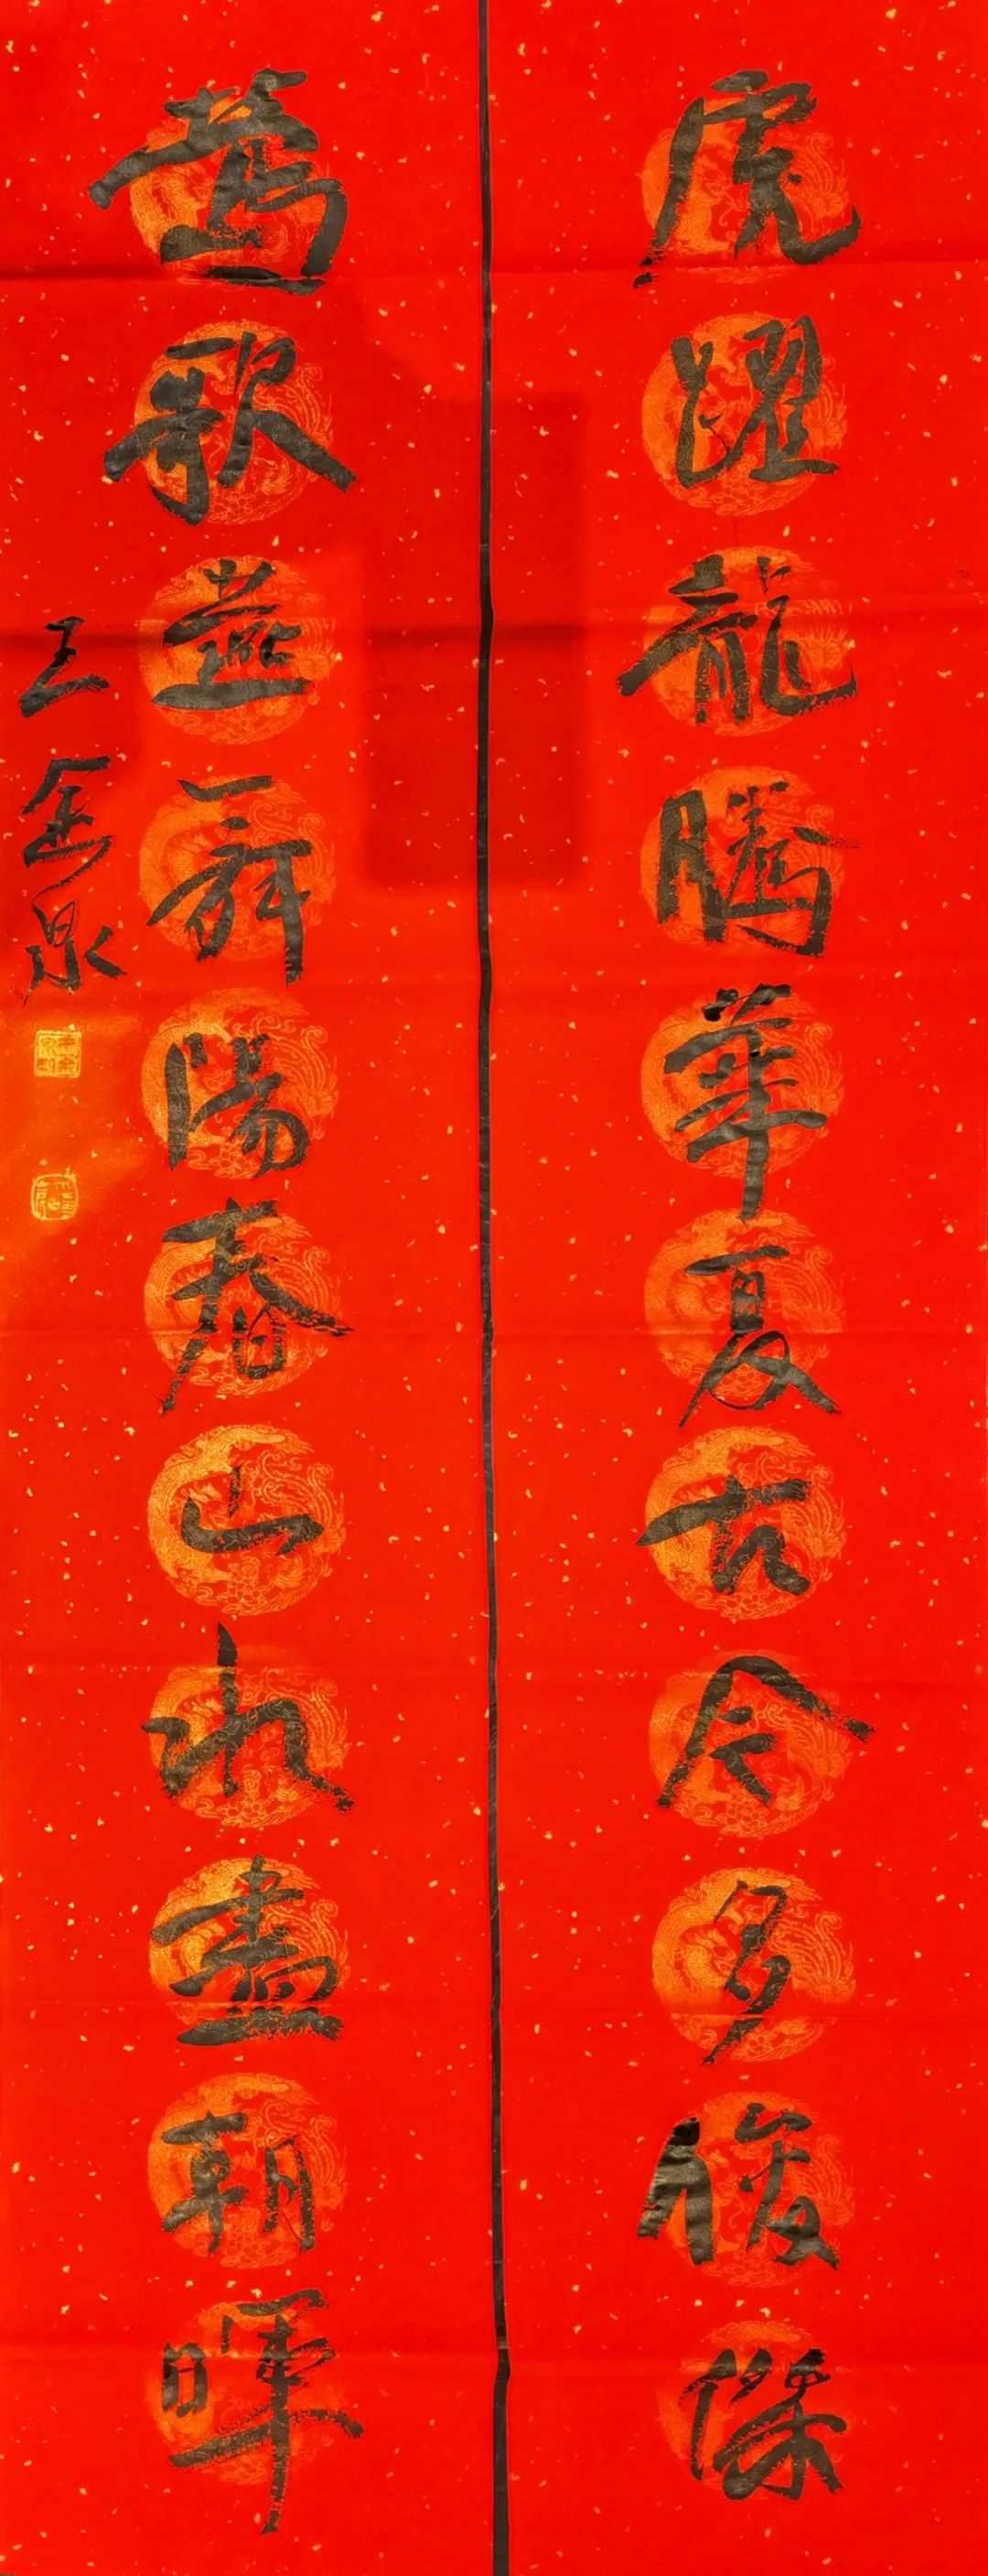 虎躍龍騰華夏古今多俊傑
鶯歌燕舞陽春山水盡朝暉
王金泉